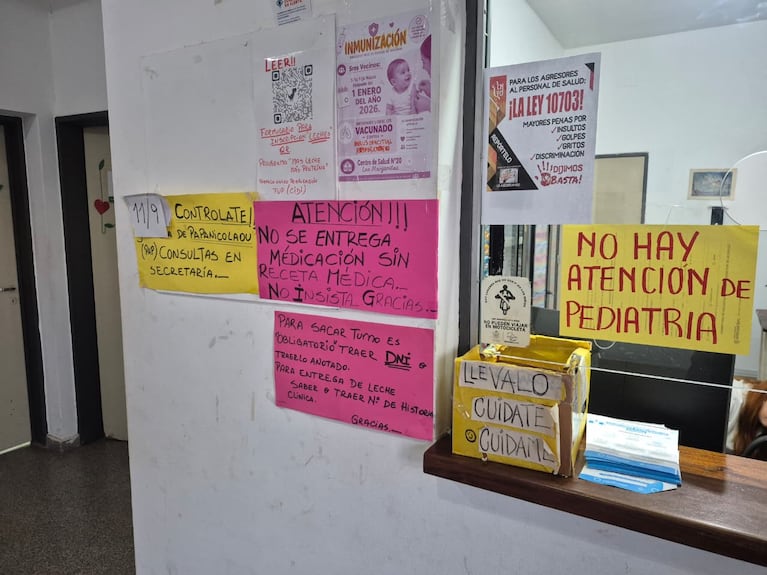 LEER!!
FORMULARIO PARA
INSCRIPCION LECHES
QR
PROGRAMA "MAS LECHE
MÁS PROTEÍNAS"
(CIDI)
INMUNIZACIÓN
Sres Vecinos:
1 ENERO
DEL AÑO
2026.
VACUNADO
Centro de Salud N°20
Las Margaritas
11/9
CONTROLATE!
DE PAPANICOLAOU
(PAP) CONSULTAS EN
SECRETARÍA._
ATENCIÓN!!!
NO SE ENTREGA
MÉDICACIÓN SIN
RECETA MÉDICA._
NO INSISTA_ GRACIAS._
PARA SACAR TURNO ES
"OBLIGATORIO" TRAER DNI o
TRAERLO ANOTADO.
PARA ENTREGA DE LECHE
SABER o TRAER N° DE HISTORIA
CLINICA.
GRACIAS._
PARA LOS AGRESORES
AL PERSONAL DE SALUD:
¡LA LEY 10703!
MAYORES PENAS POR
✓ INSULTOS
✓ GOLPES
✓ GRITOS
✓ DISCRIMINACION
REPORTALO
¡DIJIMOS
BASTA!
NO PUEDEN VIAJAR
EN MOTOCICLETA
NO HAY
ATENCIÓN DE
PEDIATRIA
LLEVALO
CUIDATE
CUIDAME